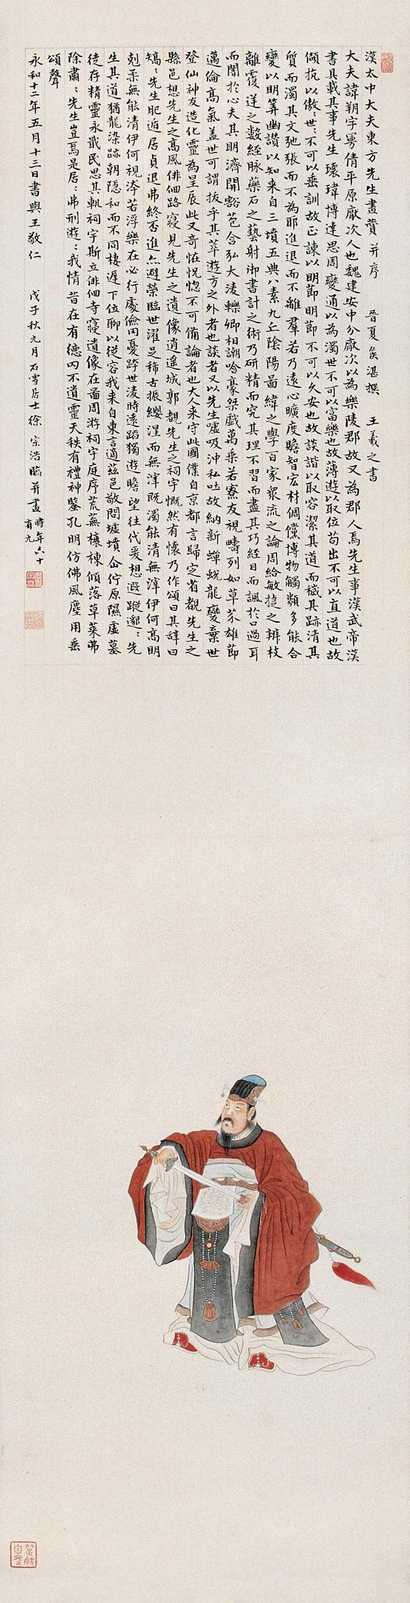 漢太中大夫東方先生畫贊 并序 晉夏侯湛撰 王羲之書
大夫諱朔字曼倩平原厭次人也魏建安中分厭次以為樂陵郡故又為郡人焉先生事漢武帝漢
書具載其事先生瓌瑋博達思周變通以為濁世不可以富樂也故薄遊以取位苟出不可以直道也故
傾抗以傲:世:不可以垂訓故正諫以明節明節不可以久安也故詼諧以取容潔其道而穢其跡清其
質而濁其文弛張而不為耶進退而不離羣若乃遠心曠度贍智宏材倜儻博物觸類多能合
變以明筭幽讚以知来自三墳五典八素九丘陰陽圖緯之學百家衆流之論周給敏捷之辨枝
離覆逆之數經脉藥石之藝射御書計之術乃研精而究其理不習而盡其巧經目而諷於口過耳
而闇於心夫其明濟開豁苞含弘大淩轢卿相謿哈豪桀戲萬乘若寮友視疇列如草芥雄節
邁倫高氣盖世可謂拔乎其萃遊方之外者也談者又以先生噓吸沖和吐故納新蟬蛻龍變棄世
登仙神友造化靈為星辰此又奇怪怳惚不可備論者也大人来守此國僕自京都言歸定省覩先生之
縣邑想先生之高風徘徊路寢見先生之遺像逍遙城郭觀先生之祠宇慨然有懷乃作頌曰其辭曰
矯:先生肥遁居貞退弗終否進亦避榮臨世濯足稀古振纓涅而無滓既濁能清無滓伊何高明
剋柔無能清伊何視汙若浮樂在必行處儉罔憂跨世淩時遠蹈獨遊瞻望往代爰想遐蹤邈:先
生其道猶龍染跡朝隱和而不同棲遲下位聊以從容我来自東言適茲邑敬問墟墳企佇原隰虛墓
徒存精靈永戢民思其軌祠宇斯立徘徊寺寢遺像在圖周將祠宇庭序荒蕪榱棟傾落草萊弗
除肅:先生豈焉是居:弗刑遊:我情昔在有德罔不遺靈天秩有禮神鑒孔明仿佛風塵用垂
頌聲
永和十二年五月十三日書與王敬仁 戊子秋九月石雪居士徐宗浩臨并畫 時年六十有九